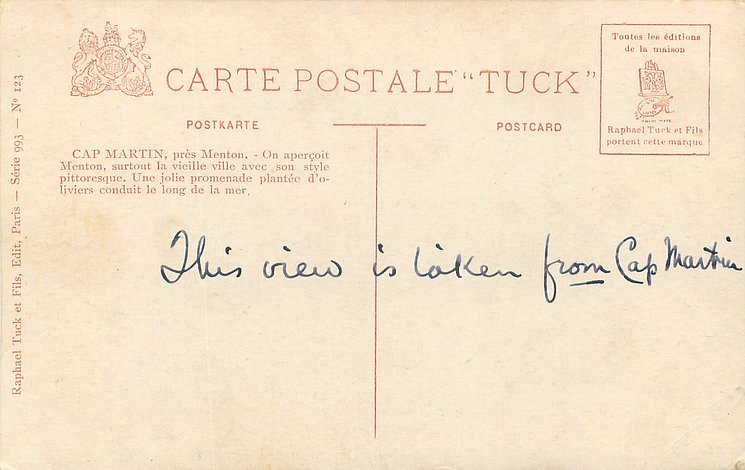 CARTE POSTALE "TUCK"
POSTKARTE
POSTCARD
Toutes les éditions
de la maison
Raphael Tuck et Fils
portent cette marque
CAP MARTIN, près Menton. - On aperçoit
Menton, surtout la vieille ville avec son style
pittoresque. Une jolie promenade plantée d'o-
liviers conduit le long de la mer.
This view is taken from Cap Martin
Raphael Tuck et Fils, Edit, Paris — Série 993 — Nº 123